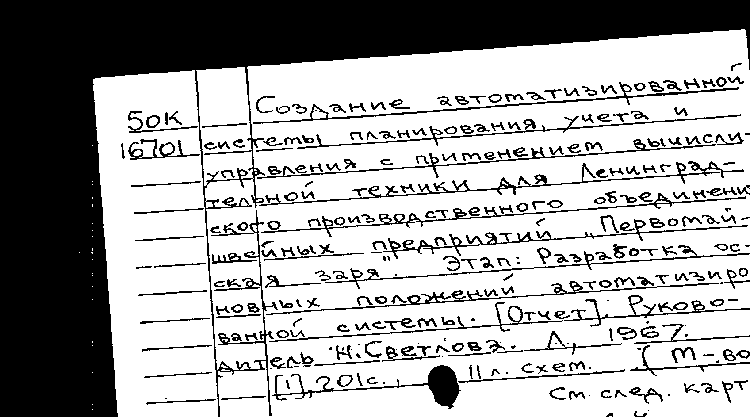 Создание автоматизированной
50К
16701 системы планирования, учета и
управления с применением вычисли-
тельной техники для Ленинград-
ского производственного объединени
швейных предприятий „Первомай-
ская заря". Этап: Разработка ос-
новных положений автоматизиро
ванной системы. [Отчет]. Руково-
дитель Н.Светлова. Л, 1967.
[1], 201с., 11 л. схем. (М-во
См. след. карт